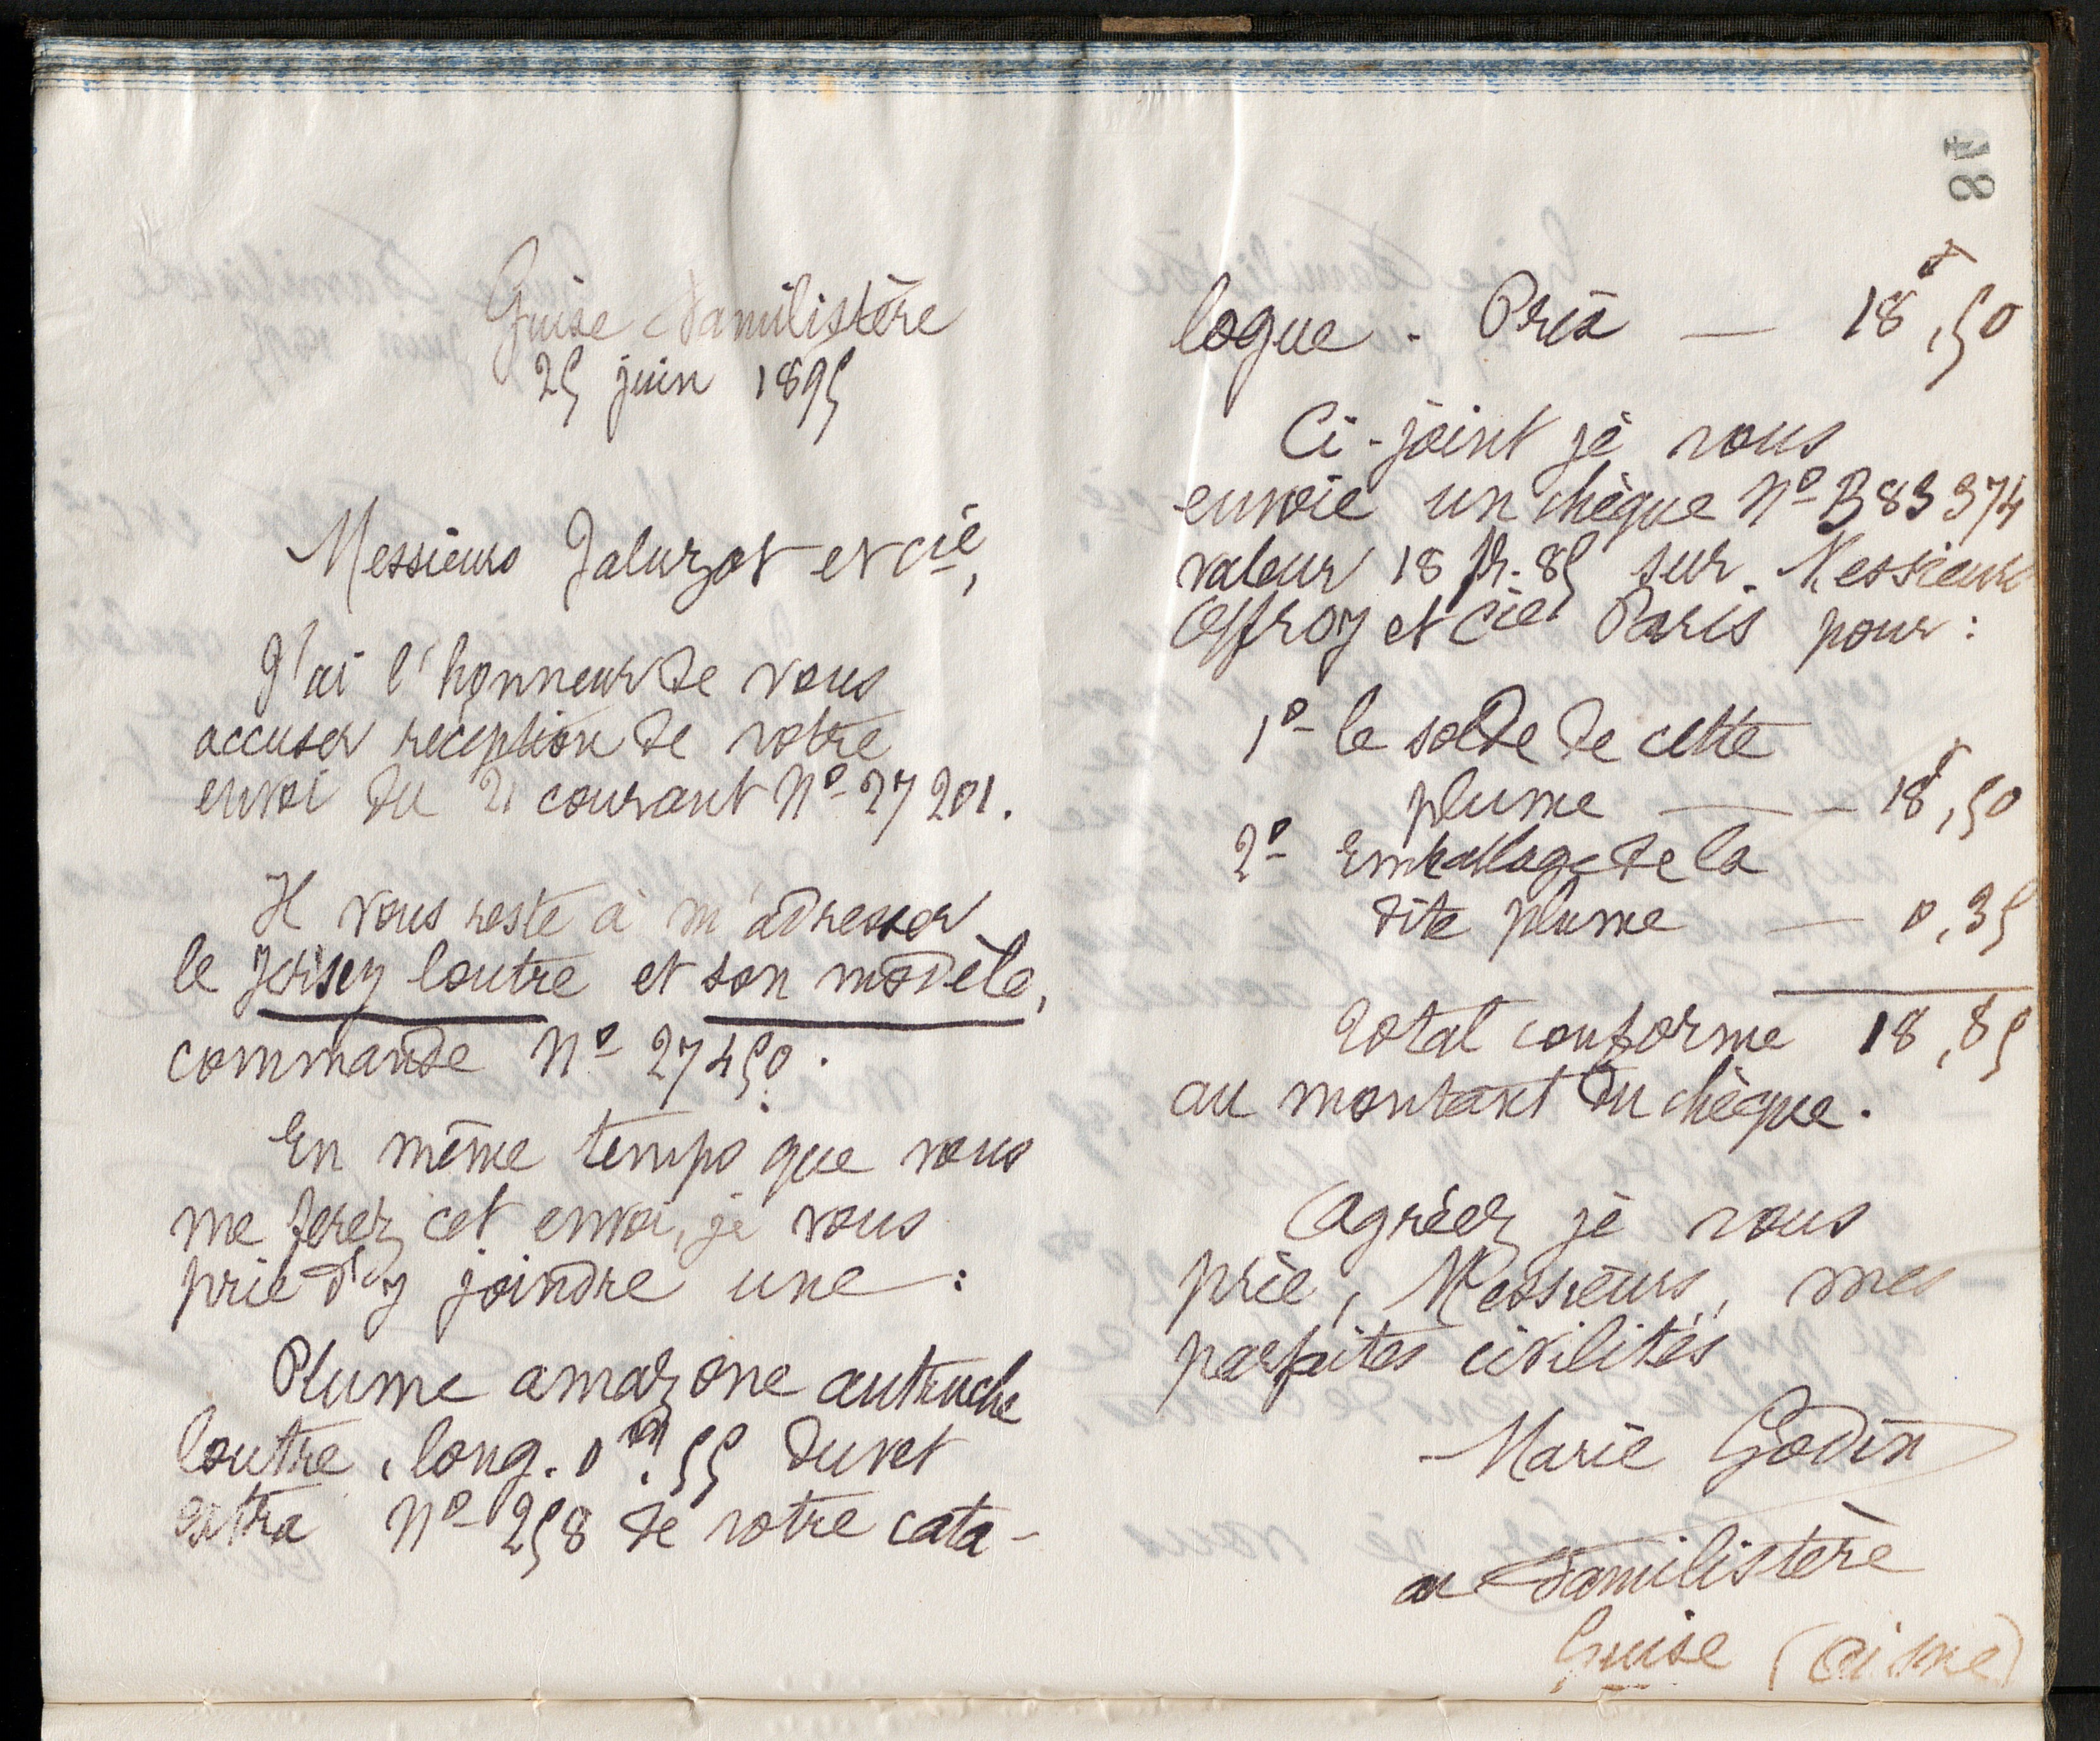 Guise Familistère
25 juin 1895
Messieurs Jaluzot et Cie,
J'ai l'honneur de vous
accuser reception de votre
envoi du 21 courant No 27 201.
Il vous reste à m'adresser
le Jersey loutre et son modèle,
commande No 27450.
En même temps que vous
me ferez cet envoi, je vous
prie d'y joindre une :
Plume amazone autruche
loutre, long. 0m.55 duvet
extra No 258 de votre cata-
logue. Prix — 18f,50
Ci-joint je vous
envoie un chèque No B83 374
valeur 18 fr. 85 sur Messieurs
Offroy et Cie Paris pour :
1o le solde de cette
plume — 18f,50
2o Emballage de la
dite plume — 0,35
Total conforme 18,85
au montant du chèque.
Agréez je vous
prie, Messieurs, mes
parfaites civilités
Marie Godin
au Familistère
Guise (Aisne)